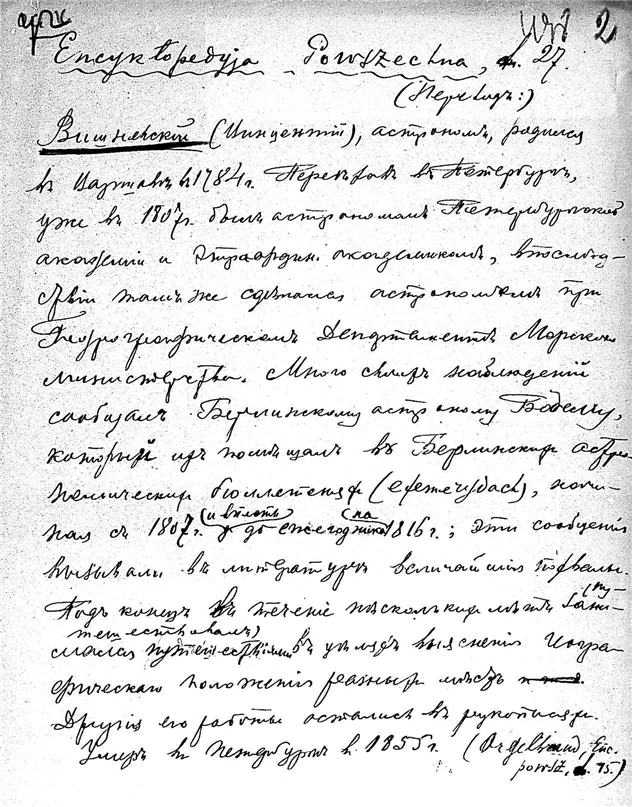 2
Encyklopedyja Powszechna, t. 27.
(Переводъ:)
Вишневскій (Винцентій), астрономъ, родился
въ Варшавѣ въ 1784 г. Переѣхавъ въ Петербургъ,
уже въ 1807 г. былъ астрономомъ Петербургской
академіи и Экстраордин. академикомъ, впослѣд-
ствіи тамъ же сдѣлался астрономомъ при
Гидрографическомъ Департаментѣ Морского
министерства. Много своихъ наблюденій
сообщалъ Берлинскому астроному Бодему,
который ихъ помѣщалъ въ Берлинских астро-
номическихъ бюллетеняхъ (efemerydach), начи-
ная съ 1807 г. (и вплоть) до ежегодника (на) 1816 г.; эти сообщенія
вызывали въ литературѣ величайшія похвалы.
Подъ конецъ въ теченіе нѣсколькихъ лѣтъ зани-
(пу-
тешествовалъ)
мался путешествіями въ цѣляхъ выясненія геогра-
фическаго положенія разныхъ мѣстъ
Другія его работы остались въ рукописяхъ.
Умеръ въ Петербургѣ въ 1855 г. (Orgelbrand, Enc.
powsz., t. 15.)